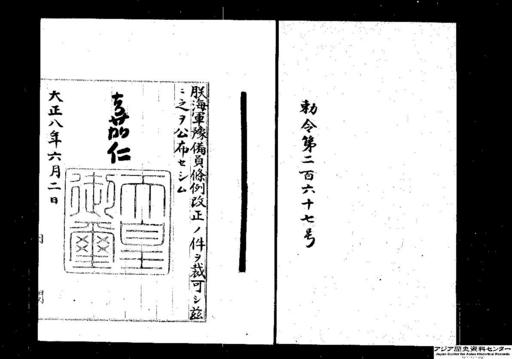 勅令第二百六十七号
朕海軍豫備員條例改正ノ件ヲ裁可シ茲
ニ之ヲ公布セシム
嘉仁
天皇御璽
大正八年六月二日
内閣
アジア歴史資料センター
Japan Center for Asian Historical Records